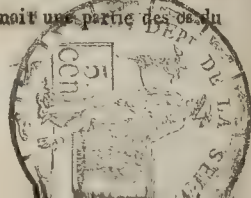 noit une partie des os du
DÉPT DE LA SE
5
cen